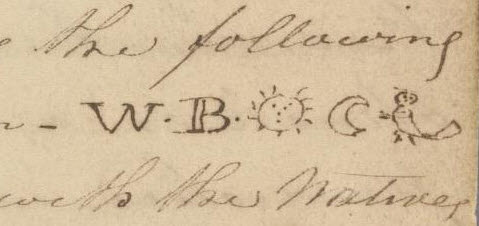 the following
W. B.
with the Natives